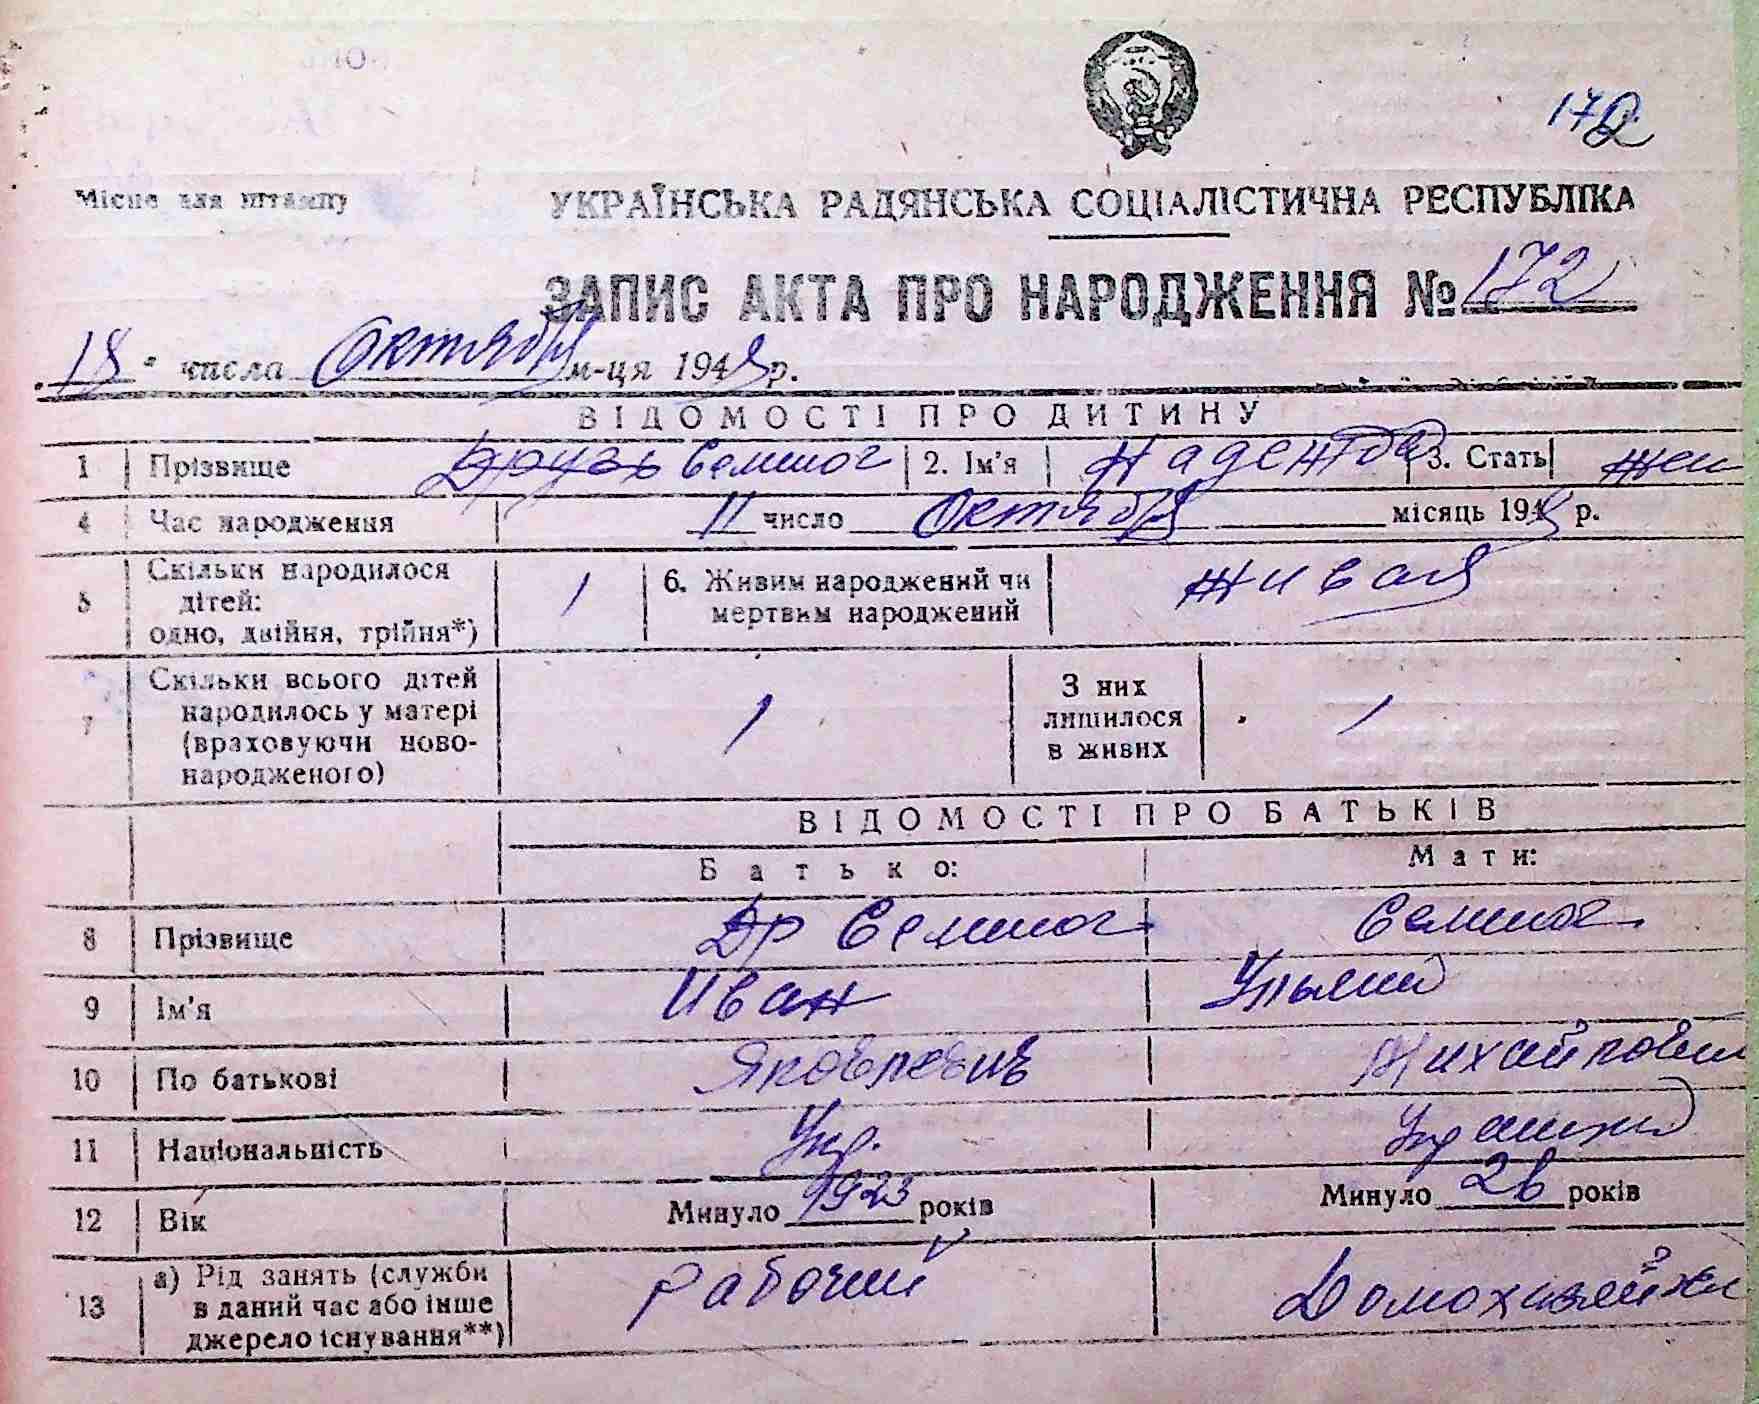 172
Місце для штампу
УКРАЇНСЬКА РАДЯНСЬКА СОЦІАЛІСТИЧНА РЕСПУБЛІКА
ЗАПИС АКТА ПРО НАРОДЖЕННЯ № 172
18 числа Октября м-ця 1948 р.
ВІДОМОСТІ ПРО ДИТИНУ
1 Прізвище Друзь Семиног 2. Ім'я Надежда 3. Стать жен
4 Час народження 11 число Октября місяць 1948 р.
5 Скільки народилося дітей: одно, двійня, трійня*) 1 6. Живим народжений чи мертвим народжений живая
7 Скільки всього дітей народилось у матері (враховуючи ново-народженого) 1 З них лишилося в живих 1
ВІДОМОСТІ ПРО БАТЬКІВ
Батько: Мати:
8 Прізвище Др Семиног Семиног
9 Ім'я Иван Ульяна
10 По батькові Яковлевич Михайловна
11 Національність Укр. Украинка
12 Вік Минуло 1923 років Минуло 26 років
13 а) Рід занять (служби в даний час або інше джерело існування**) Рабочий Домохозяйка